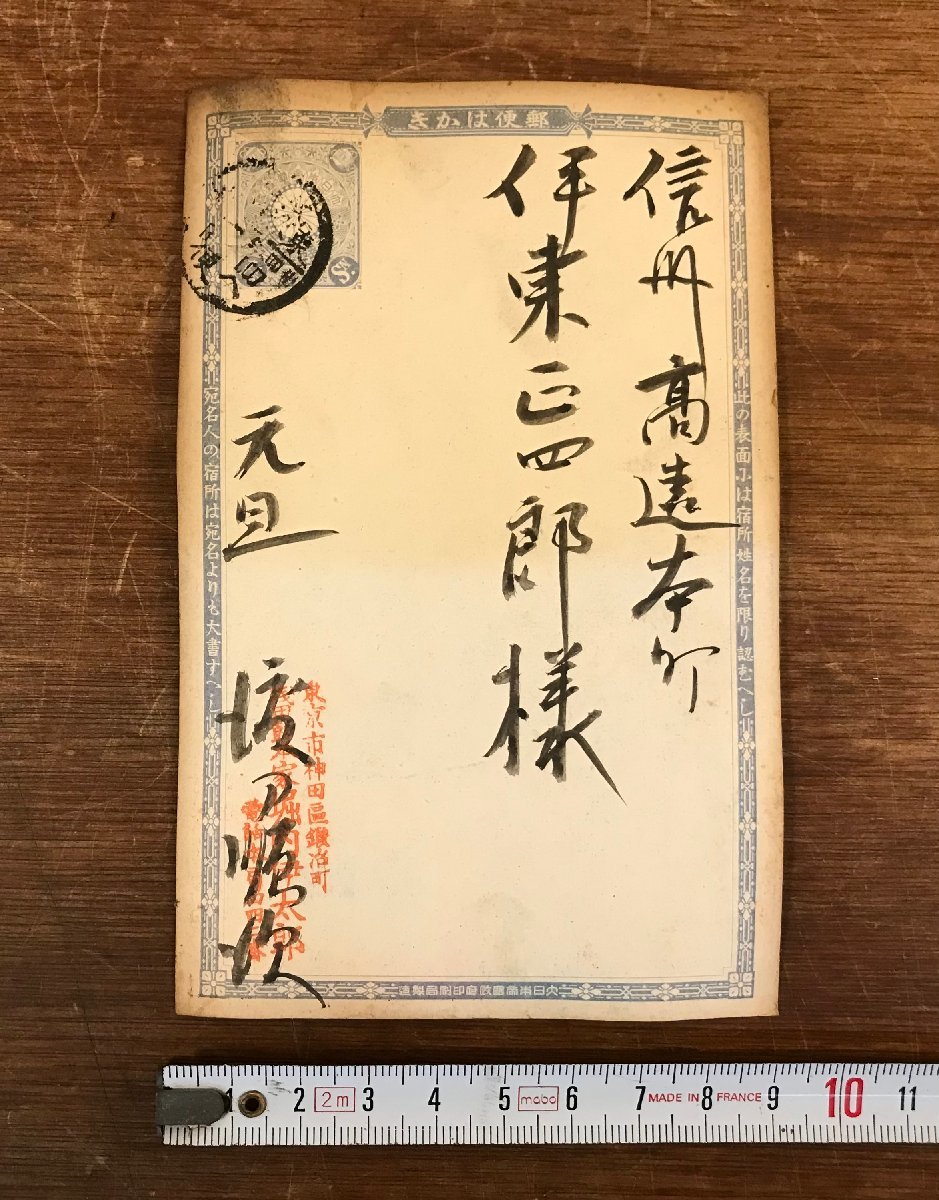 郵便はかき
此の表面には宿所姓名を限り認むへし
信州高遠本町
伊東正四郎様
元旦
東京市神田區鍛冶町
太郎
宛名人の宿所は宛名よりも大書すへし
大日本帝國政府印刷局製造
1 2 2m 3 4 5 mabo 6 7 MADE IN 8 FRANCE 9 10 11